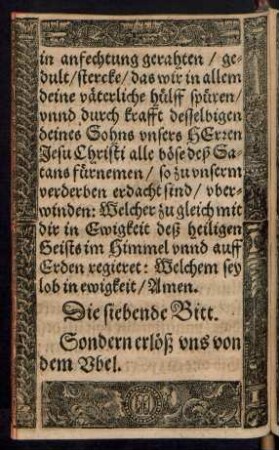 in anfechtung gerahten / ge-
dult / stercke / das wir in allem
deine väterliche hülff spüren /
vnnd durch krafft desselbigen
deines Sohns vnsers HErren
Jesu Christi alle böse deß Sa-
tans fürnemen / so zu vnserm
verderben erdacht sind / vber-
winden: Welcher zu gleich mit
dir in Ewigkeit deß heiligen
Geists im Himmel vnnd auff
Erden regieret: Welchem sey
lob in ewigkeit / Amen.
Die siebende Bitt.
Sondern erlöß vns von
dem Vbel.